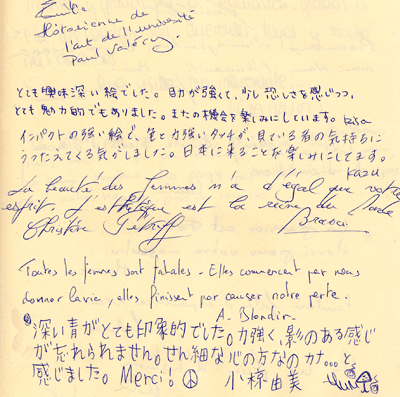 Emilie
Historienne de
l'art de l'université
Paul Valéry.
とても興味深い絵でした。目力が強くて、少し恐しさを感じつつ、
とても魅力的でもありました。またの機会を楽しみにしています。 Risa
インパクトの強い絵で、色と力強いタッチが、見ている者の気持ちに
うったえてくる気がしました。日本に来ることを楽しみにしてます。
Kazu
La beauté des femmes n'a d'égal que votre
esprit. L'esthétique est la reine du
Christine
Bravo
Toutes les femmes sont fatales - Elles commencent par nous
donner la vie, elles finissent par causer notre perte.
A. Blondin
深い青がとても印象的でした。力強く、影のある感じ
が忘れられません。せん細な心の方なのカナ...と、
感じました。Merci! 小椋由美